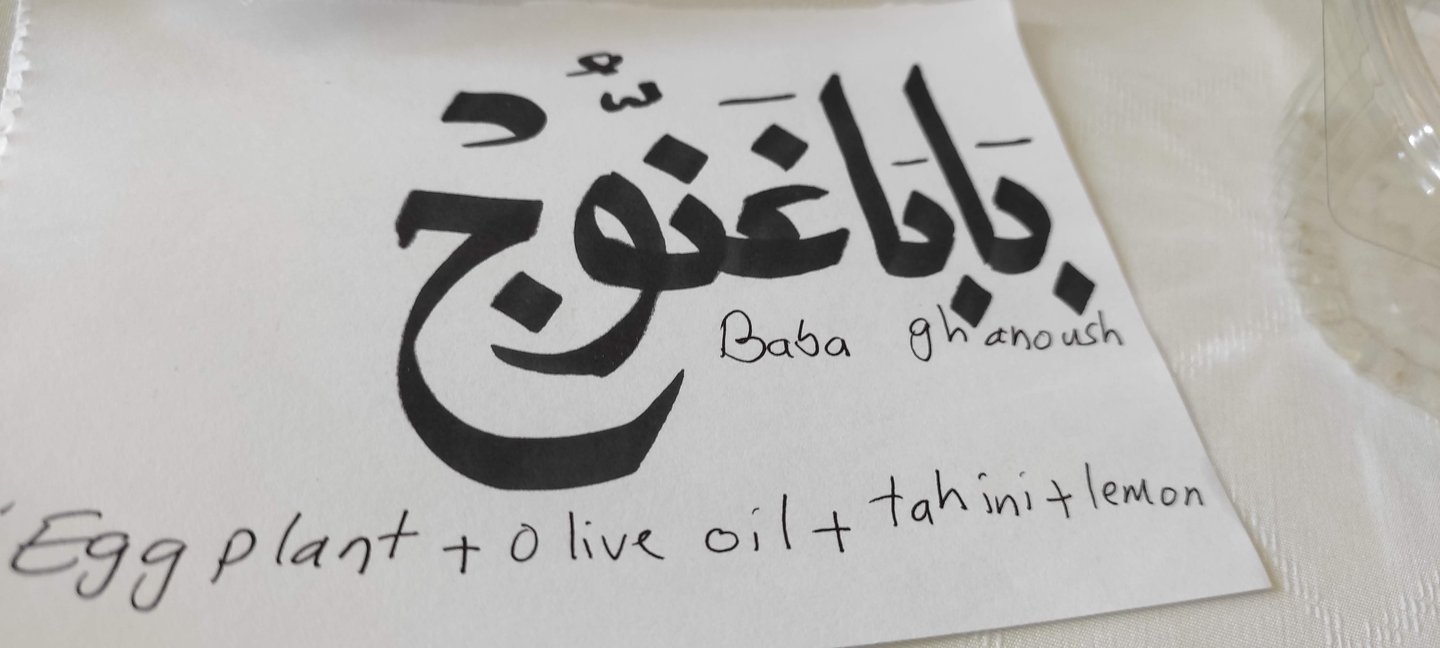 بَابَا غَنُّوجْ
Baba ghanoush
Eggplant + Olive oil + tahini + lemon